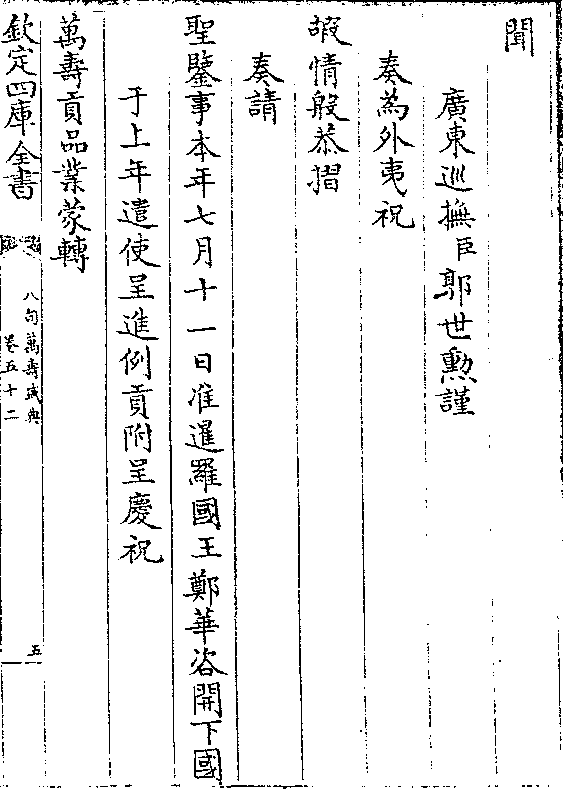 聞
廣東巡撫臣郭世勲謹
奏為外夷祝
嘏情殷恭摺
奏請
聖鑒事本年七月十一日准暹羅國王鄭華咨開下國
于上年遣使呈進例貢附呈慶祝
萬壽貢品業蒙轉
欽定四庫全書
八旬萬壽盛典
卷五十二
五